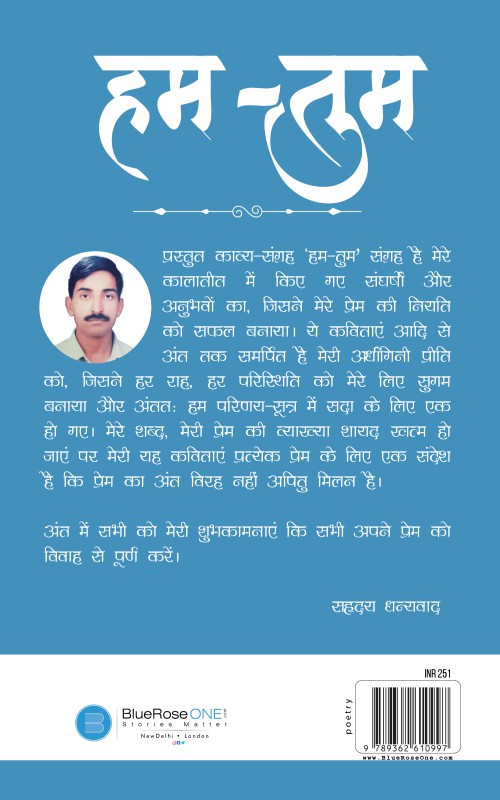 हम-तुम
प्रस्तुत काव्य-संग्रह 'हम-तुम' संग्रह है मेरे
कालातीत में किए गए संघर्षों और
अनुभवों का, जिसने मेरे प्रेम की नियति
को सफल बनाया। ये कविताएं आदि से
अंत तक समर्पित है मेरी अर्धांगिनी प्रीति
को, जिसने हर राह, हर परिस्थिति को मेरे लिए सुगम
बनाया और अंततः हम परिणय-सूत्र में सदा के लिए एक
हो गए। मेरे शब्द, मेरी प्रेम की व्याख्या शायद खत्म हो
जाएं पर मेरी यह कविताएं प्रत्येक प्रेम के लिए एक संदेश
है कि प्रेम का अंत विरह नहीं अपितु मिलन है।
अंत में सभी को मेरी शुभकामनाएं कि सभी अपने प्रेम को
विवाह से पूर्ण करें।
सहृदय धन्यवाद
INR 251
poetry
BlueRose ONE.com
Stories Matter
NewDelhi • London
9 789362 610997
www.BlueRoseOne.com